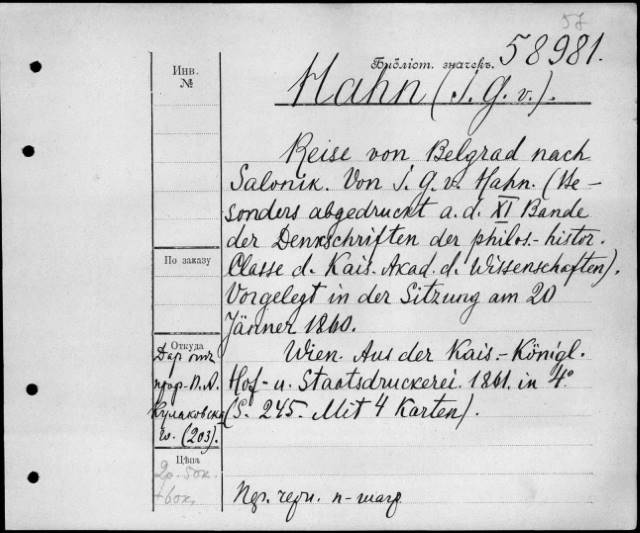 57
Библіот. значекъ. 58981.
Инв.
№
Hahn (J. G. v.).
Reise von Belgrad nach
Salonik. Von J. G. v. Hahn. (Be-
sonders abgedruckt a. d. XI Bande
der Denkschriften der philos.-histor.
Classe d. Kais. Akad. d. Wissenschaften).
Vorgelegt in der Sitzung am 20
Jänner 1860.
Wien. Aus der Kais.-Königl.
Hof- u. Staatsdruckerei. 1861. in 4°.
(S. 245. Mit 4 Karten).
По заказу
Откуда
Дар отъ
проф. П. А.
Кулаковска
го. (203).
Цѣна
2р. 50к.
+ 60к.